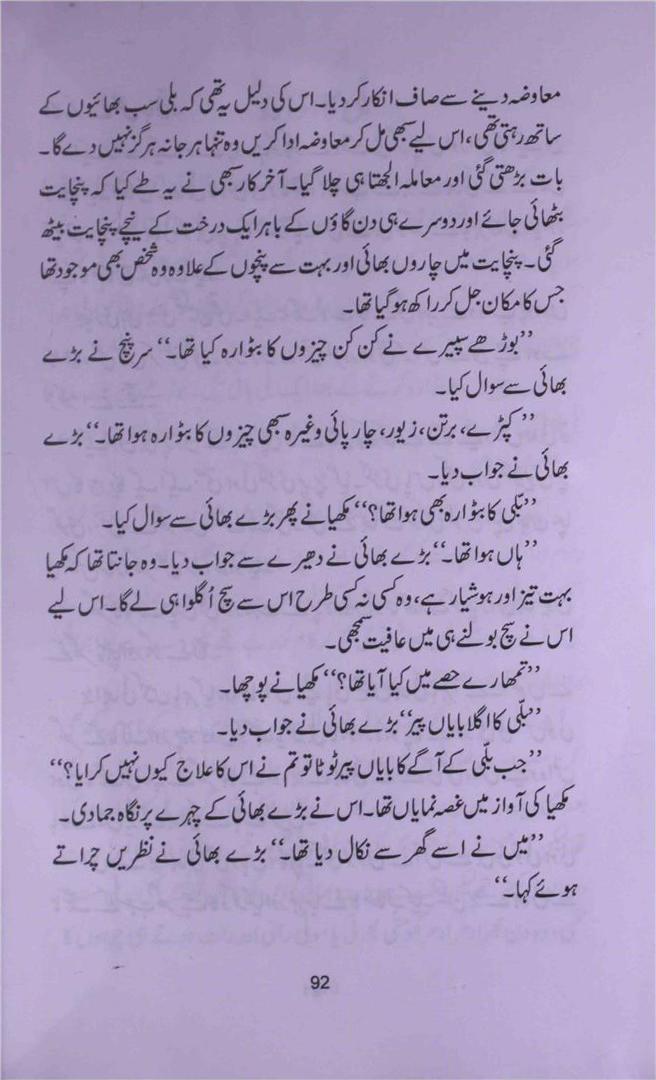 معاوضہ دینے سے صاف انکار کر دیا۔ اس کی دلیل یہ تھی کہ بلی سب بھائیوں کے
ساتھ رہتی تھی، اس لیے سبھی مل کر معاوضہ ادا کریں وہ تنہا ہرجانہ ہرگز نہیں دے گا۔
بات بڑھتی گئی اور معاملہ الجھتا ہی چلا گیا۔ آخر کار سبھی نے یہ طے کیا کہ پنچایت
بٹھائی جائے اور دوسرے ہی دن گاؤں کے باہر ایک درخت کے نیچے پنچایت بیٹھ
گئی۔ پنچایت میں چاروں بھائی اور بہت سے پنچوں کے علاوہ وہ شخص بھی موجود تھا
جس کا مکان جل کر راکھ ہو گیا تھا۔
’’بوڑھے سپیرے نے کن کن چیزوں کا بٹوارہ کیا تھا۔‘‘ سرپنچ نے بڑے
بھائی سے سوال کیا۔
’’کپڑے، برتن، زیور، چارپائی وغیرہ سبھی چیزوں کا بٹوارہ ہوا تھا۔‘‘ بڑے
بھائی نے جواب دیا۔
’’بلّی کا بٹوارہ بھی ہوا تھا؟‘‘ مکھیا نے پھر بڑے بھائی سے سوال کیا۔
’’ہاں ہوا تھا۔‘‘ بڑے بھائی نے دھیرے سے جواب دیا۔ وہ جانتا تھا کہ مکھیا
بہت تیز اور ہوشیار ہے، وہ کسی نہ کسی طرح اس سے سچ اُگلوا ہی لے گا۔ اس لیے
اس نے سچ بولنے ہی میں عافیت سمجھی۔
’’تمھارے حصے میں کیا آیا تھا؟‘‘ مکھیا نے پوچھا۔
’’بلّی کا اگلا بایاں پیر‘‘ بڑے بھائی نے جواب دیا۔
’’جب بلّی کے آگے کا بایاں پیر ٹوٹا تو تم نے اس کا علاج کیوں نہیں کرایا؟‘‘
مکھیا کی آواز میں غصہ نمایاں تھا۔ اس نے بڑے بھائی کے چہرے پر نگاہ جمادی۔
’’میں نے اسے گھر سے نکال دیا تھا۔‘‘ بڑے بھائی نے نظریں چراتے
ہوئے کہا۔‘‘
92